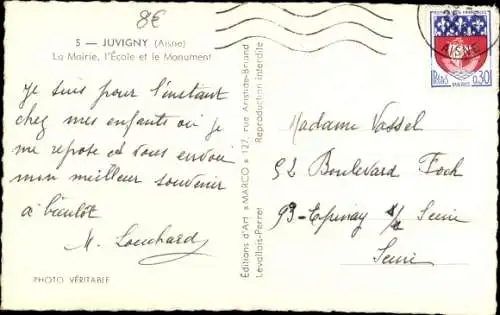 8€
5 — JUVIGNY (Aisne)
La Mairie, l'École et le Monument
Je suis pour l'instant
chez mes enfants où je
me repose et vous envoie
mon meilleur souvenir
à bientôt
M. Louchard
PHOTO VÉRITABLE
Editions d'Art "MARCO" 127, rue Aristide-Briand
Levallois-Perret
Reproduction interdite
AISNE
PARIS
0,30
Madame Vassel
52 Boulevard Foch
93-Epinay s/ Seine
Seine